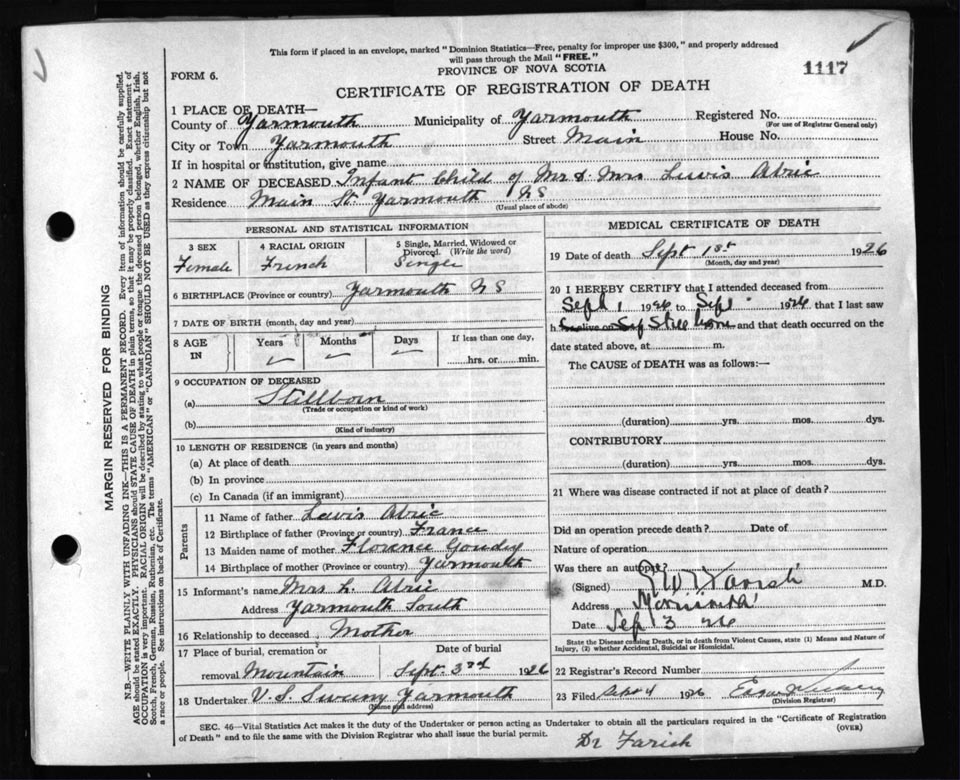 This form if placed in an envelope, marked "Dominion Statistics—Free, penalty for improper use $300," and properly addressed
will pass through the Mail "FREE."
PROVINCE OF NOVA SCOTIA
1117
FORM 6.
CERTIFICATE OF REGISTRATION OF DEATH
MARGIN RESERVED FOR BINDING
N.B.—WRITE PLAINLY WITH UNFADING INK—THIS IS A PERMANENT RECORD. Every item of information should be carefully supplied.
AGE should be stated EXACTLY. PHYSICIANS should STATE CAUSE OF DEATH in plain terms, so that it may be properly classified. Exact statement of
OCCUPATION is very important. RACIAL ORIGIN will be described by stating to what people or tongue the deceased person belonged, whether English, Irish,
Scotch, French, German, Russian, Ruthenian, etc. The terms "AMERICAN" or "CANADIAN" SHOULD NOT BE USED as they express citizenship but not
a race or people. See instructions on back of Certificate.
1 PLACE OF DEATH—
County of Yarmouth Municipality of Yarmouth Registered No.
(For use of Registrar General only)
City or Town Yarmouth Street Main House No.
If in hospital or institution, give name
2 NAME OF DECEASED Infant Child of Mr & Mrs Lewis Abric
Residence Main St. Yarmouth NS
(Usual place of abode)
PERSONAL AND STATISTICAL INFORMATION
3 SEX 4 RACIAL ORIGIN 5 Single, Married, Widowed or
Divorced. (Write the word)
Female French Single
6 BIRTHPLACE (Province or country) Yarmouth NS
7 DATE OF BIRTH (month, day and year)
8 AGE IN Years Months Days If less than one day,
hrs. or min.
9 OCCUPATION OF DECEASED
(a) Stillborn
(Trade or occupation or kind of work)
(b)
(Kind of industry)
10 LENGTH OF RESIDENCE (in years and months)
(a) At place of death
(b) In province
(c) In Canada (if an immigrant)
Parents
11 Name of father Lewis Abric
12 Birthplace of father (Province or country) France
13 Maiden name of mother Florence Goudey
14 Birthplace of mother (Province or country) Yarmouth
15 Informant's name Mrs L. Abric
Address Yarmouth South
16 Relationship to deceased Mother
17 Place of burial, cremation or Date of burial
removal Mountain Sept. 3rd 1926
18 Undertaker V. S. Sweeny Yarmouth
(Name and address)
MEDICAL CERTIFICATE OF DEATH
19 Date of death Sept 1st 1926
(Month, day and year)
20 I HEREBY CERTIFY that I attended deceased from
Sept 1 1926 to Sept 1926 that I last saw
h alive on Still born and that death occurred on the
date stated above, at m.
The CAUSE of DEATH was as follows:—
(duration) yrs. mos. dys.
CONTRIBUTORY
(duration) yrs. mos. dys.
21 Where was disease contracted if not at place of death?
Did an operation precede death? Date of
Nature of operation
Was there an autopsy?
(Signed) Farish M.D.
Address Yarmouth
Date Sep 3 26
State the Disease causing Death, or in death from Violent Causes, state (1) Means and Nature of
Injury, (2) whether Accidental, Suicidal or Homicidal.
22 Registrar's Record Number
23 Filed Sept 4 1926
(Division Registrar)
SEC. 46—Vital Statistics Act makes it the duty of the Undertaker or person acting as Undertaker to obtain all the particulars required in the "Certificate of Registration
of Death" and to file the same with the Division Registrar who shall issue the burial permit. (OVER)
Dr Farish